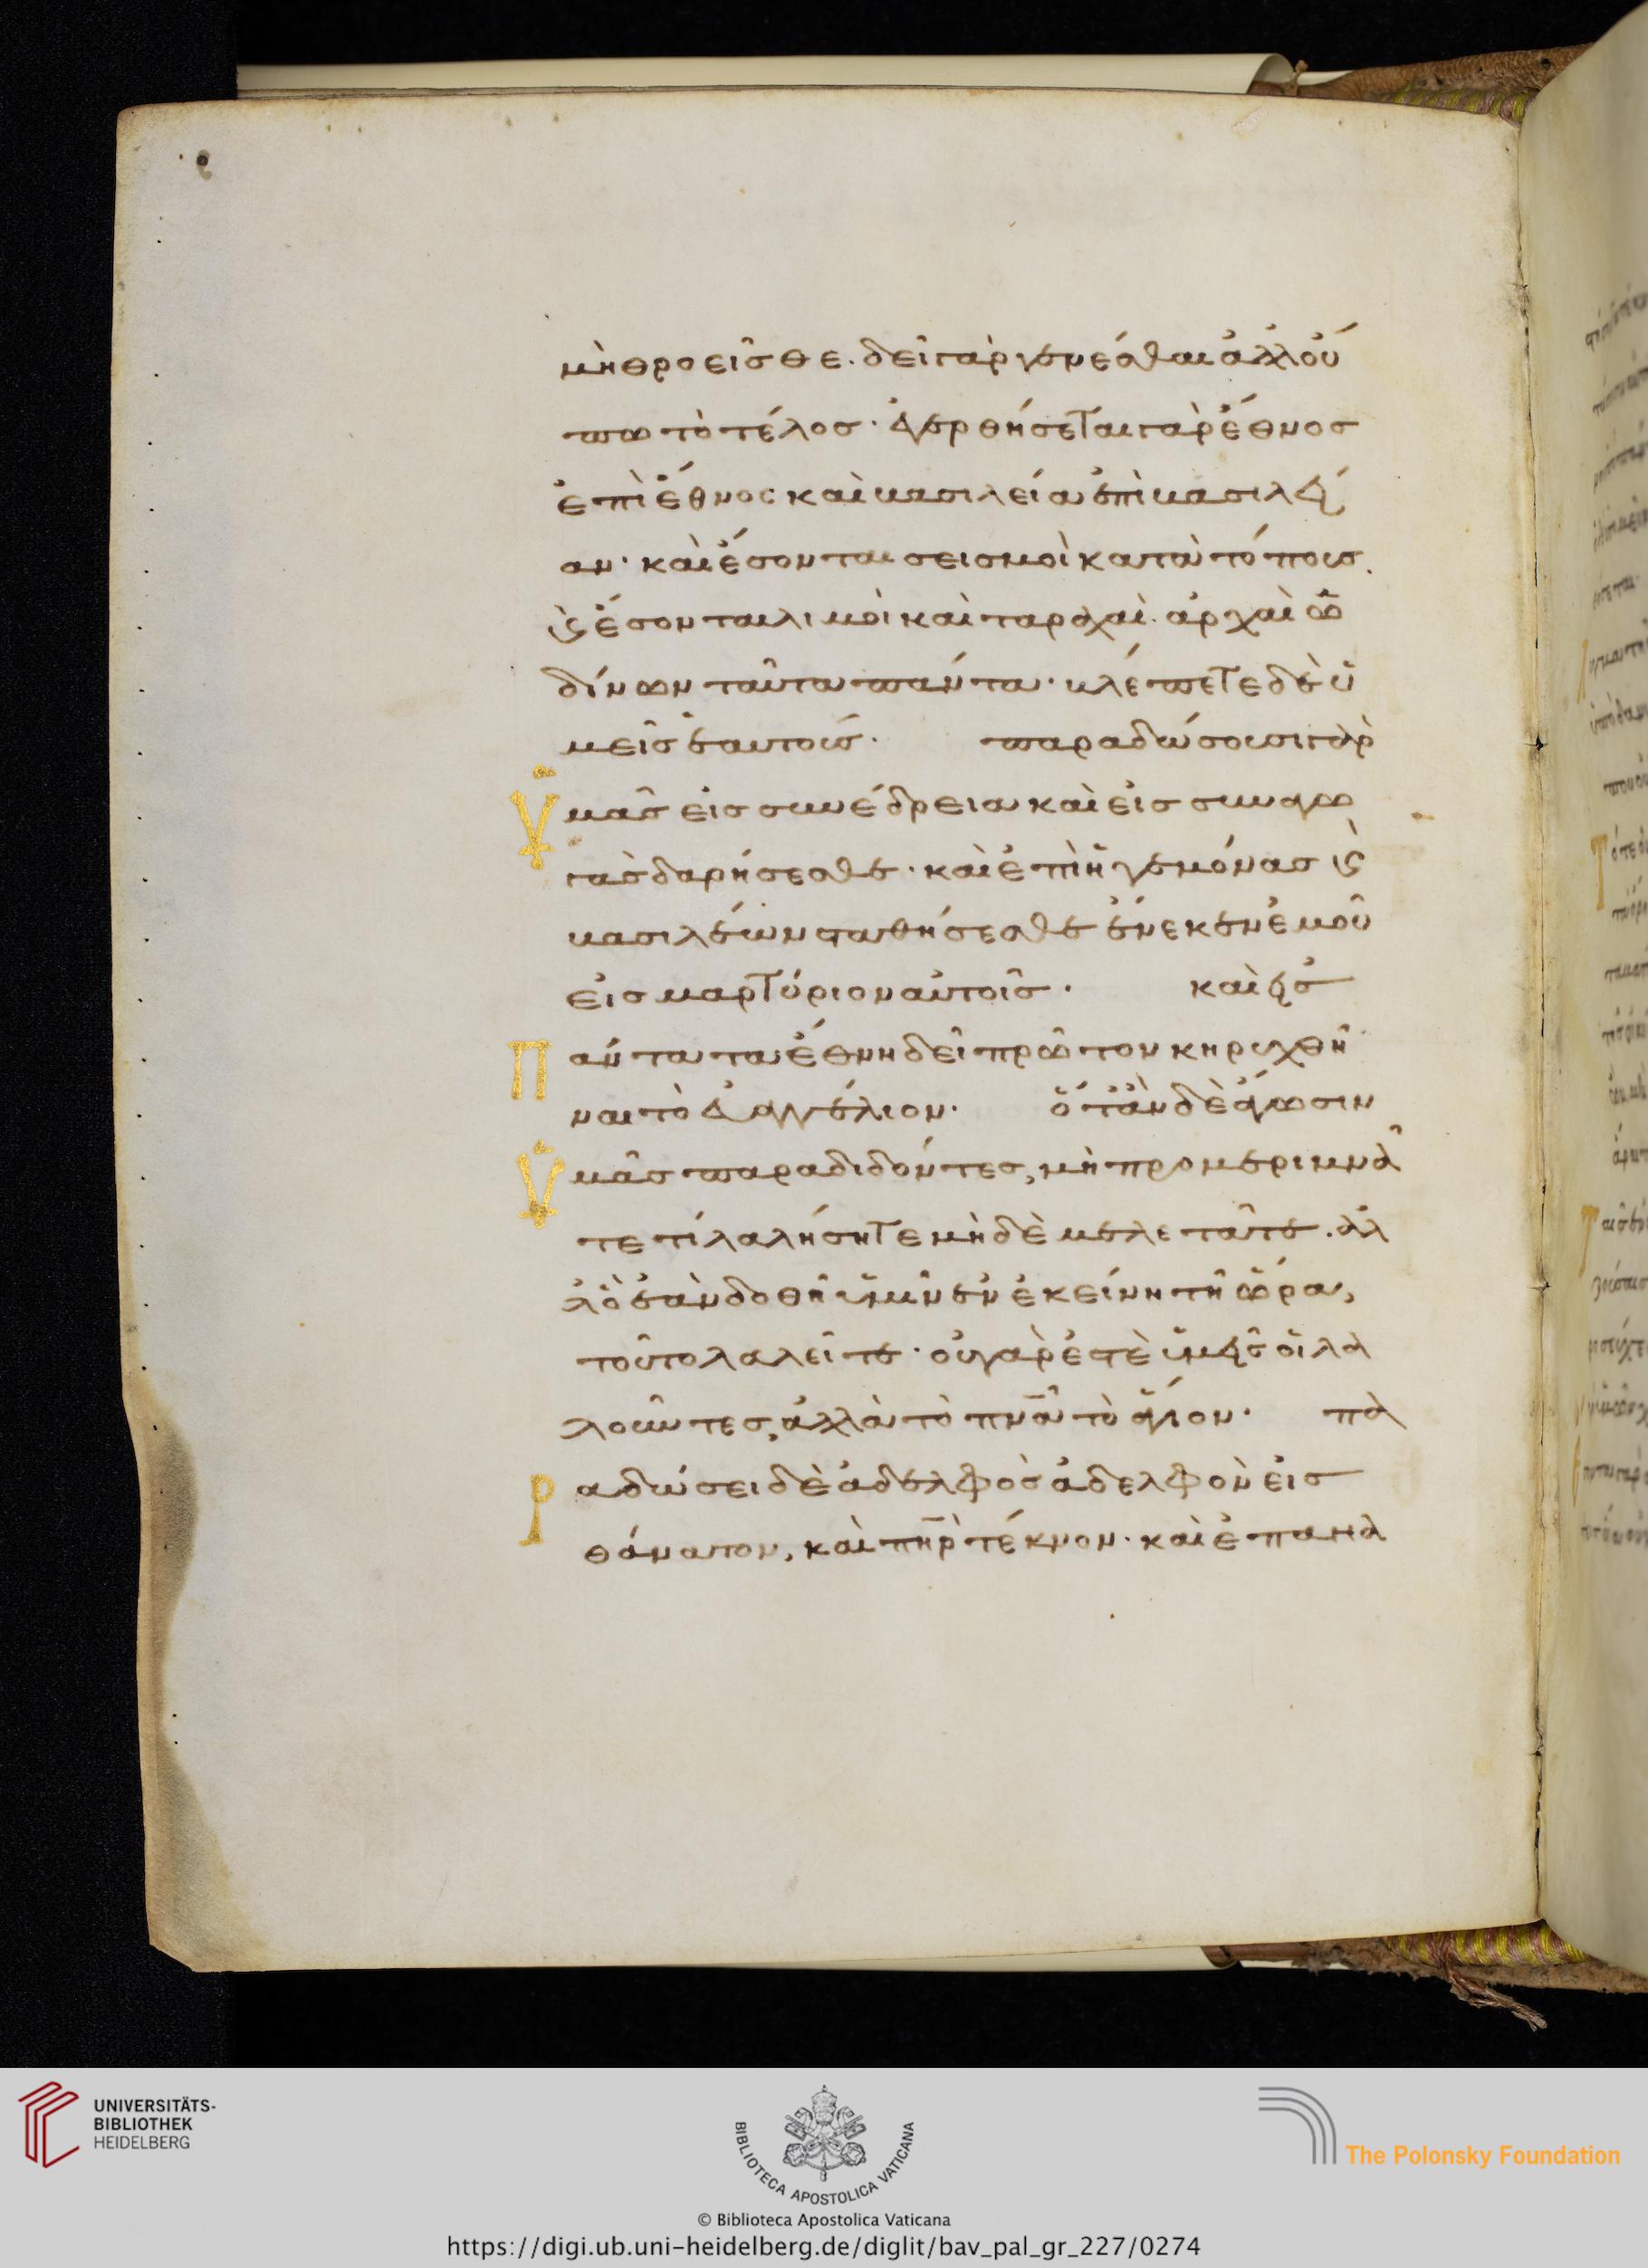 μὴ θροεῖσθε. δεῖ γὰρ γενέσθαι ἀλλ οὔ
πω τὸ τέλος· ἐγερθήσεται γὰρ ἔθνος
ἐπὶ ἔθνος καὶ βασιλεία ἐπὶ βασιλεί
αν· καὶ ἔσονται σεισμοὶ κατὰ τόπους.
ϗ ἔσονται λιμοὶ καὶ ταραχαὶ. ἀρχαὶ ὠ
δίνων ταῦτα πάντα· βλέπετε δὲ ὑ
μεῖς ἑαυτούς· παραδώσουσι γὰρ
ὑμᾶς εἰς συνέδρεια καὶ εἰς συναγω
γὰς δαρήσεσθε· καὶ ἐπὶ ἡγεμόνας ϗ
βασιλέων σταθήσεσθε ἕνεκεν ἐμοῦ
εἰς μαρτύριον αὐτοῖς· καὶ εἰς
Πάντα τα ἔθνη δεῖ πρῶτον κηρυχθῆ
ναι τὸ εὐαγγέλιον· ὅταν δὲ ἄγωσιν
ὑμᾶς παραδιδόντες, μὴ προμεριμνᾶ
τε τί λαλήσητε μηδὲ μελετᾶτε. ἀλ
λ ὃ ἐὰν δοθῆ ὑμῖν ἐν ἐκείνη τῆ ὥρα,
τοῦτο λαλεῖτε· οὐ γάρ ἐστὲ ὑμεῖς οἱ λα
λοῦντες, ἀλλὰ τὸ πνα τὸ ἅγιον· πα
Ραδώσει δὲ ἀδελφὸς ἀδελφὸν εἰς
θάνατον, καὶ πηρ τέκνον· καὶ ἐπανα
UNIVERSITÄTS-
BIBLIOTHEK
HEIDELBERG
BIBLIOTECA APOSTOLICA VATICANA
The Polonsky Foundation
© Biblioteca Apostolica Vaticana
https://digi.ub.uni-heidelberg.de/diglit/bav_pal_gr_227/0274